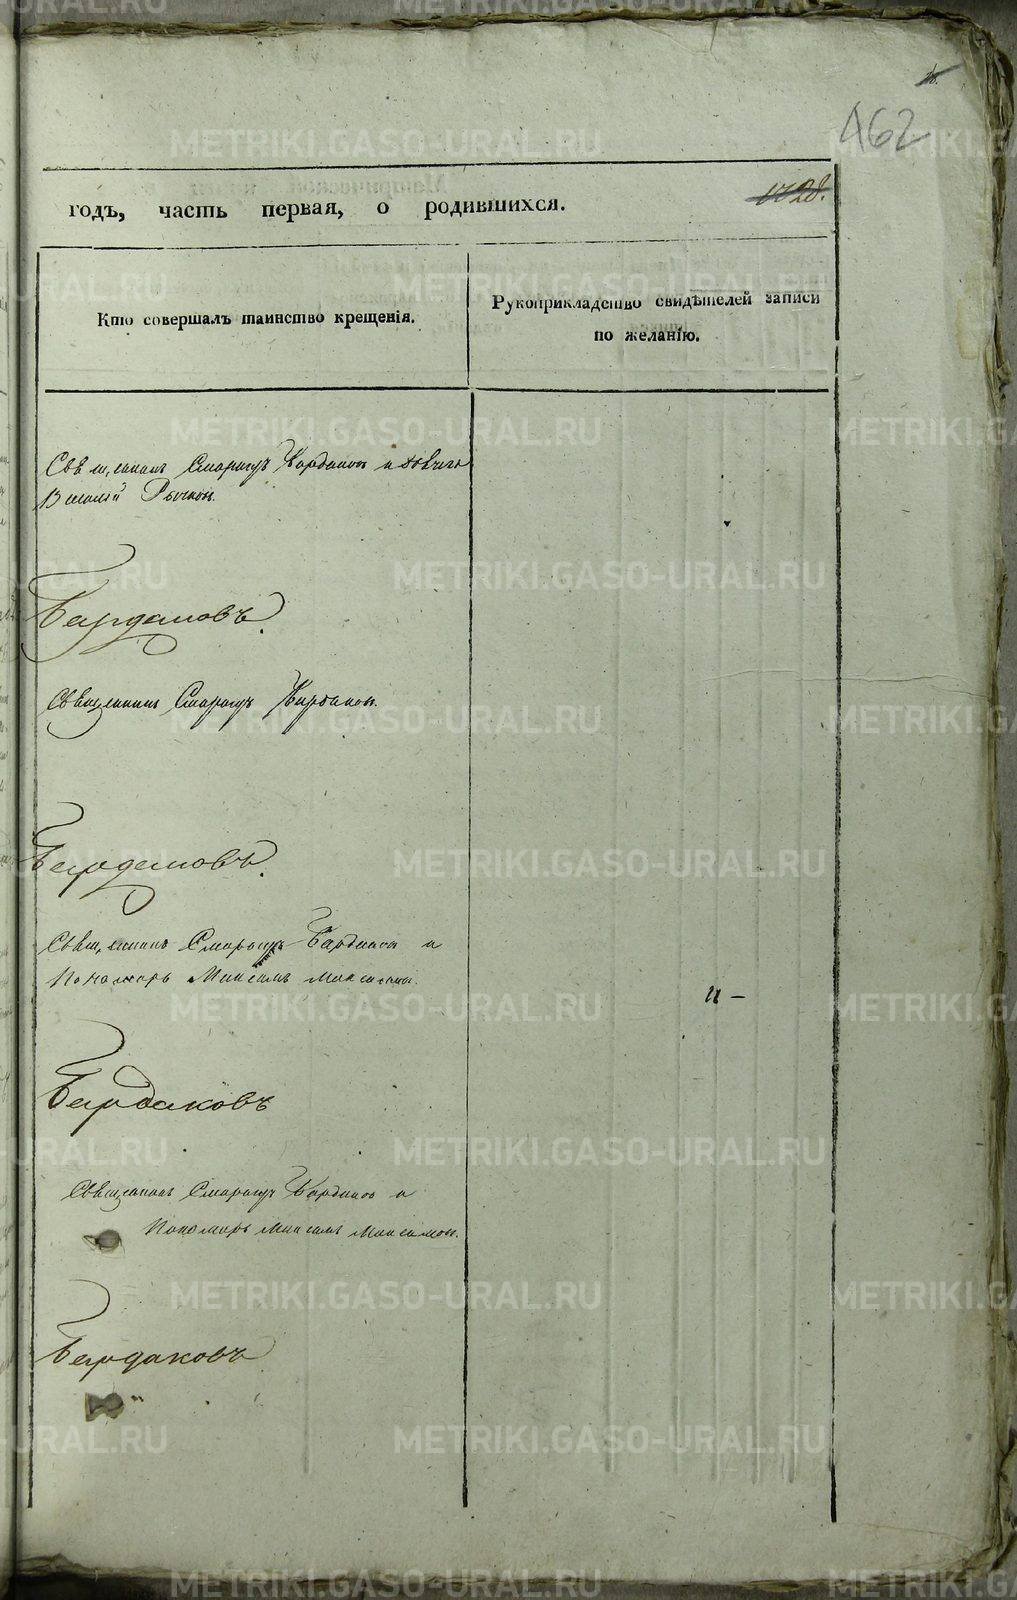 462
годъ, часть первая, о родившихся.
Кто совершалъ таинство крещенія.
Рукоприкладство свидѣтелей записи
по желанію.
Священникъ Смарагдъ Бардаковъ и
Василій Рычковъ.
Бардаковъ.
Священникъ Смарагдъ Бардаковъ.
Бардаковъ.
Священникъ Смарагдъ Бардаковъ и
Пономарь Максимъ Максимовъ.
Бардаковъ
Священникъ Смарагдъ Бардаковъ и
Пономарь Максимъ Максимовъ.
Бардаковъ
METRIKI.GASO-URAL.RU